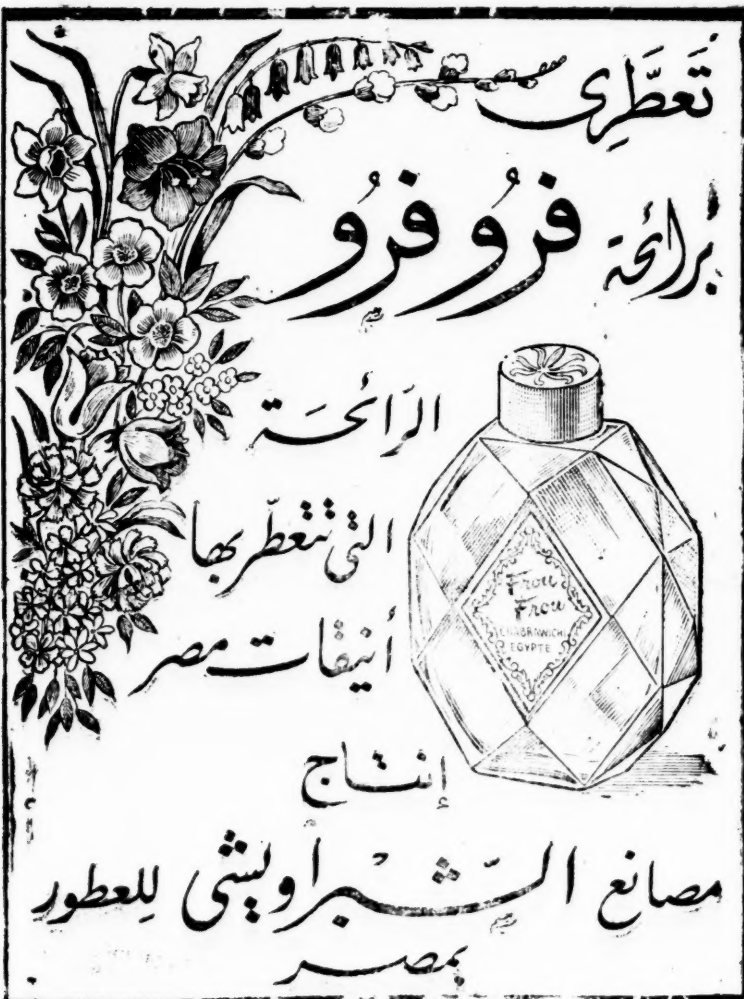 تَعطَّرِى
برائحة فرُو فرُو
الرَائحَة
التى تتعطّر بها
أنيقات مصر
Frou
Frou
CHABRAWICHI
EGYPTE
إنتاج
مصانع الشّبْراويشى لِلعطور
بمصر